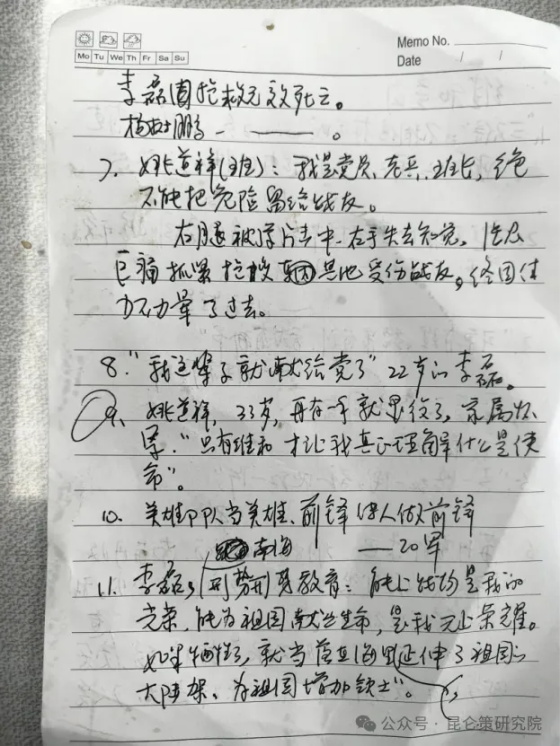 Memo No.
Mo Tu We Th Fr Sa Su
Date / /
李磊因抢救无效死亡。
杨树朋 — ——。
7、姚道祥(班长):我是党员、老兵、班长,绝
不能把危险留给战友。
右腿被弹片击中、右手失去知觉,
巨痛抓紧抢救车内其他受伤战友,终因体
力不力晕了过去。
8.“我这辈子就献给党了”22岁的李磊。
9、姚道祥,33岁,再有一年就退役了,家属怀
孕.“只有维和才让我真正理解什么是使
命”。
10、英雄部队当英雄、前锋传人做前锋
南海 ——20军
11、李磊、形势教育:能上战场是我的
光荣,能为祖国献出生命,是我无上荣耀。
如果牺牲了,就当南海里延伸了祖国的
大陆架、为祖国增加领土”。
公众号·昆仑策研究院